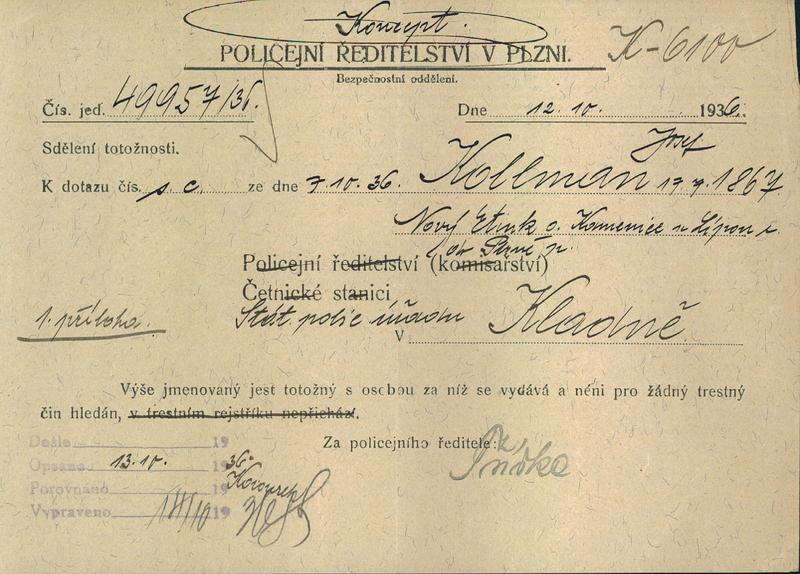 Koncept.
POLICEJNÍ ŘEDITELSTVÍ V PLZNI.
K-6100
Bezpečnostní oddělení.
Čís. jed. 49957/36.
Dne 12.10. 1936.
Sdělení totožnosti.
Josef
K dotazu čís. s. c. ze dne 7.10.36. Kollman 17.9.1867
Nový o. Kamenice n Lípou
ob p.
Policejní ředitelství (komisařství)
Četnické stanici
1. příloha.
Stát. polic úřadu
V Kladně
Výše jmenovaný jest totožný s osobou za níž se vydává a néni pro žádný trestný
čin hledán, v trestním rejstříku nepřichází.
Došlo 19
Za policejního ředitele:
Opsáno 13.10. 1936.
Porovnáno 19
Vypraveno 14/10 19